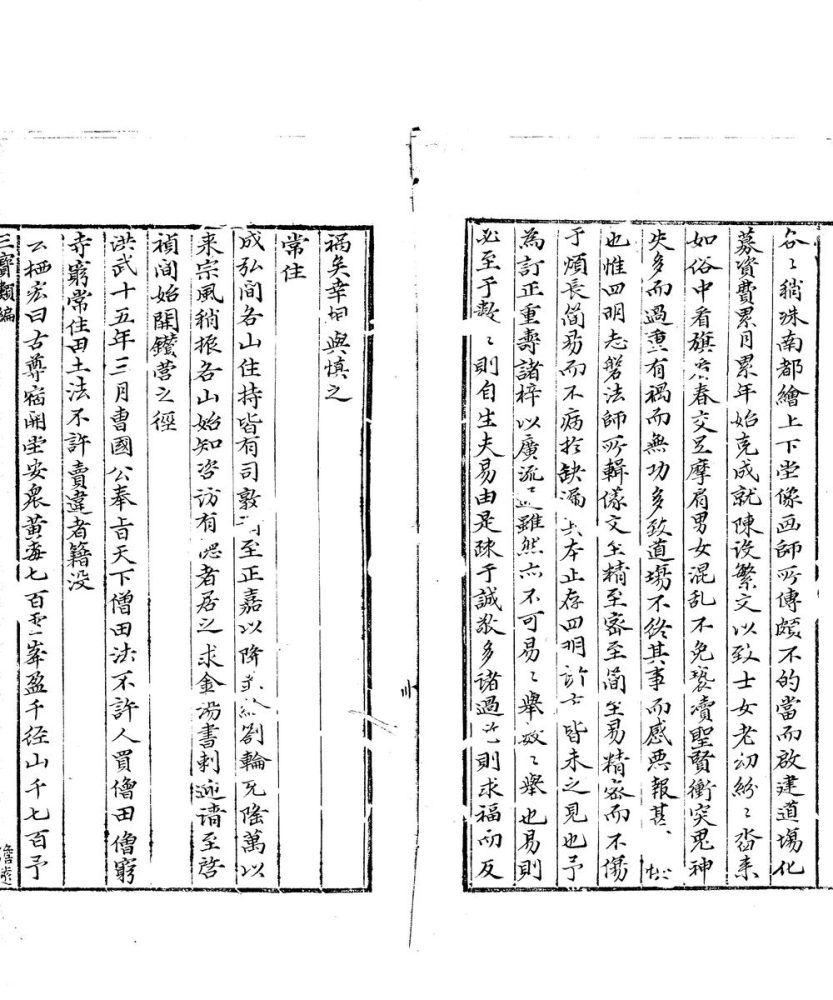 各〻稍殊南都繪上下堂像画師所傳頗不的當而啟建道塲化
募資費累月累年始克成就陳设繁文以致士女老幼紛〻沓来
如俗中看旗春交足摩肩男女混乱不免褻瀆聖賢衝突鬼神
失多而過重有禍而無功多致道塲不终其事而感惡報甚
也惟四明志磐法師所輯儀文至精至密至简至易精密而不傷
于煩長简易而不病於缺漏其本止存四明諸方皆未之見也予
為訂正重壽諸梓以廣流通雖然亦不可易〻舉數〻舉也易則
必至于數〻則自生夫易由是疎于誠敬多諸過咎則求福而反
禍矣幸相與慎之
常住
成弘間各山住持皆有司敦請至正嘉以降輪瓦隆萬以
来宗風稍振各山始知咨访有德者居之求金湯書剌迎请至啓
禎间始開鑽营之徑
洪武十五年三月曺國公奉旨天下僧田法不許人買僧田僧窮
寺窮常住田土法不許賣違者籍没
云栖宏曰古尊宿開堂安衆黄梅七百雪峯盈千经山千七百予
三寳類编